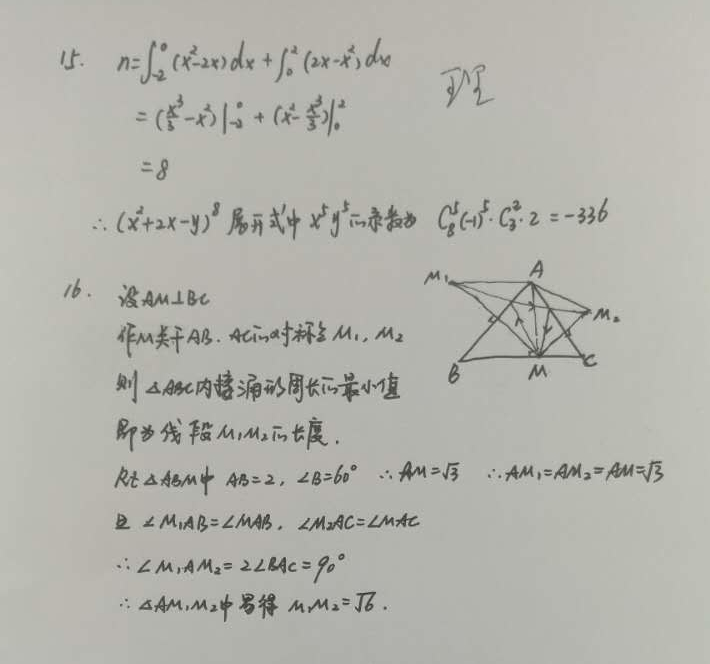 15. n=∫₋₂⁰(x²-2x)dx+∫₀²(2x-x²)dx
理
=(x³/3-x²)|₋₂⁰+(x²-x³/3)|₀²
=8
∴(x²+2x-y)⁸展开式中x⁵y⁵的系数为 C₈⁵(-1)⁵·C₃²·2=-336
16. 设AM⊥BC
作M关于AB、AC的对称点M₁,M₂
则△ABC内接三角形周长的最小值
即为线段M₁M₂的长度.
Rt△ABM中 AB=2,∠B=60° ∴AM=√3 ∴AM₁=AM₂=AM=√3
且∠M₁AB=∠MAB,∠M₂AC=∠MAC
∴∠M₁AM₂=2∠BAC=90°
∴△AM₁M₂中易得 M₁M₂=√6.
M₁ A
M₂
B M C